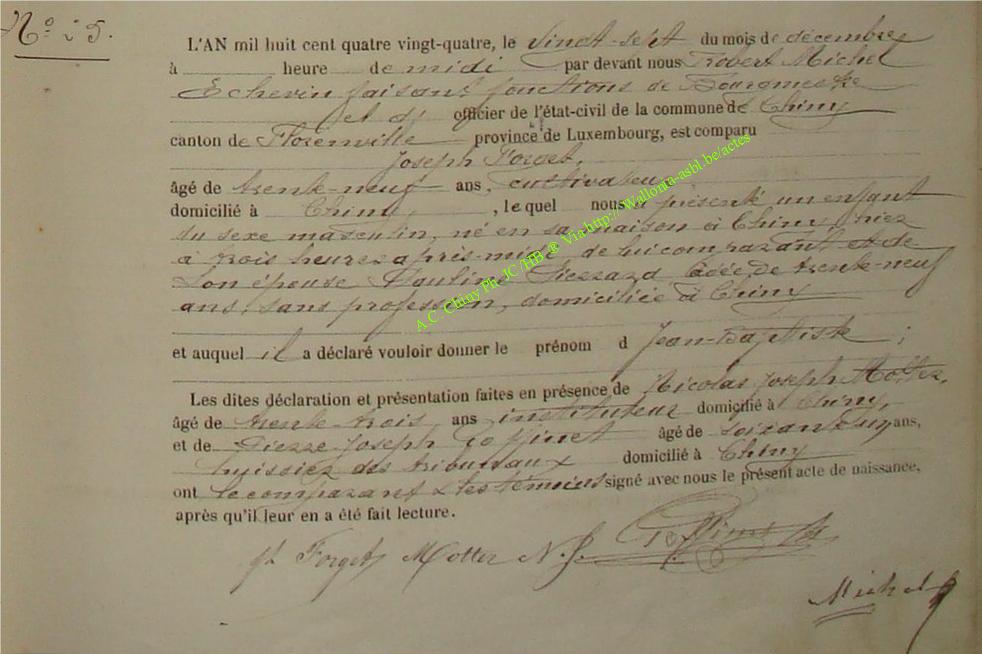 N° 25.
L'AN mil huit cent quatre vingt-quatre, le vingt-sept du mois de décembre
à heure de midi par devant nous Robert Michel
Echevin faisant fonctions de Bourgmestre
et d' officier de l'état-civil de la commune de Chiny
canton de Florenville province de Luxembourg, est comparu
Joseph Forget,
âgé de trente-neuf ans, cultivateur
domicilié à Chiny, , le quel nous a présenté un enfant
du sexe masculin, né en sa maison à Chiny, hier
à trois heures après-midi de lui comparant et de
son épouse Pauline Pierrard âgée de trente-neuf
ans, sans profession, domiciliée à Chiny
et auquel il a déclaré vouloir donner le prénom d Jean-Baptiste ;
Les dites déclaration et présentation faites en présence de Nicolas Joseph Motter,
âgé de trente trois ans instituteur domicilié à Chiny,
et de Pierre Joseph Goffinet âgé de soixante un ans,
huissier des tribunaux domicilié à Chiny
ont le comparant & les témoins signé avec nous le présent acte de naissance,
après qu'il leur en a été fait lecture.
Jh Forget Motter N. J. Goffinet
Michel
A.C. Chiny Ph. JC /HB ® Via http://Wallonia-asbl.be/actes